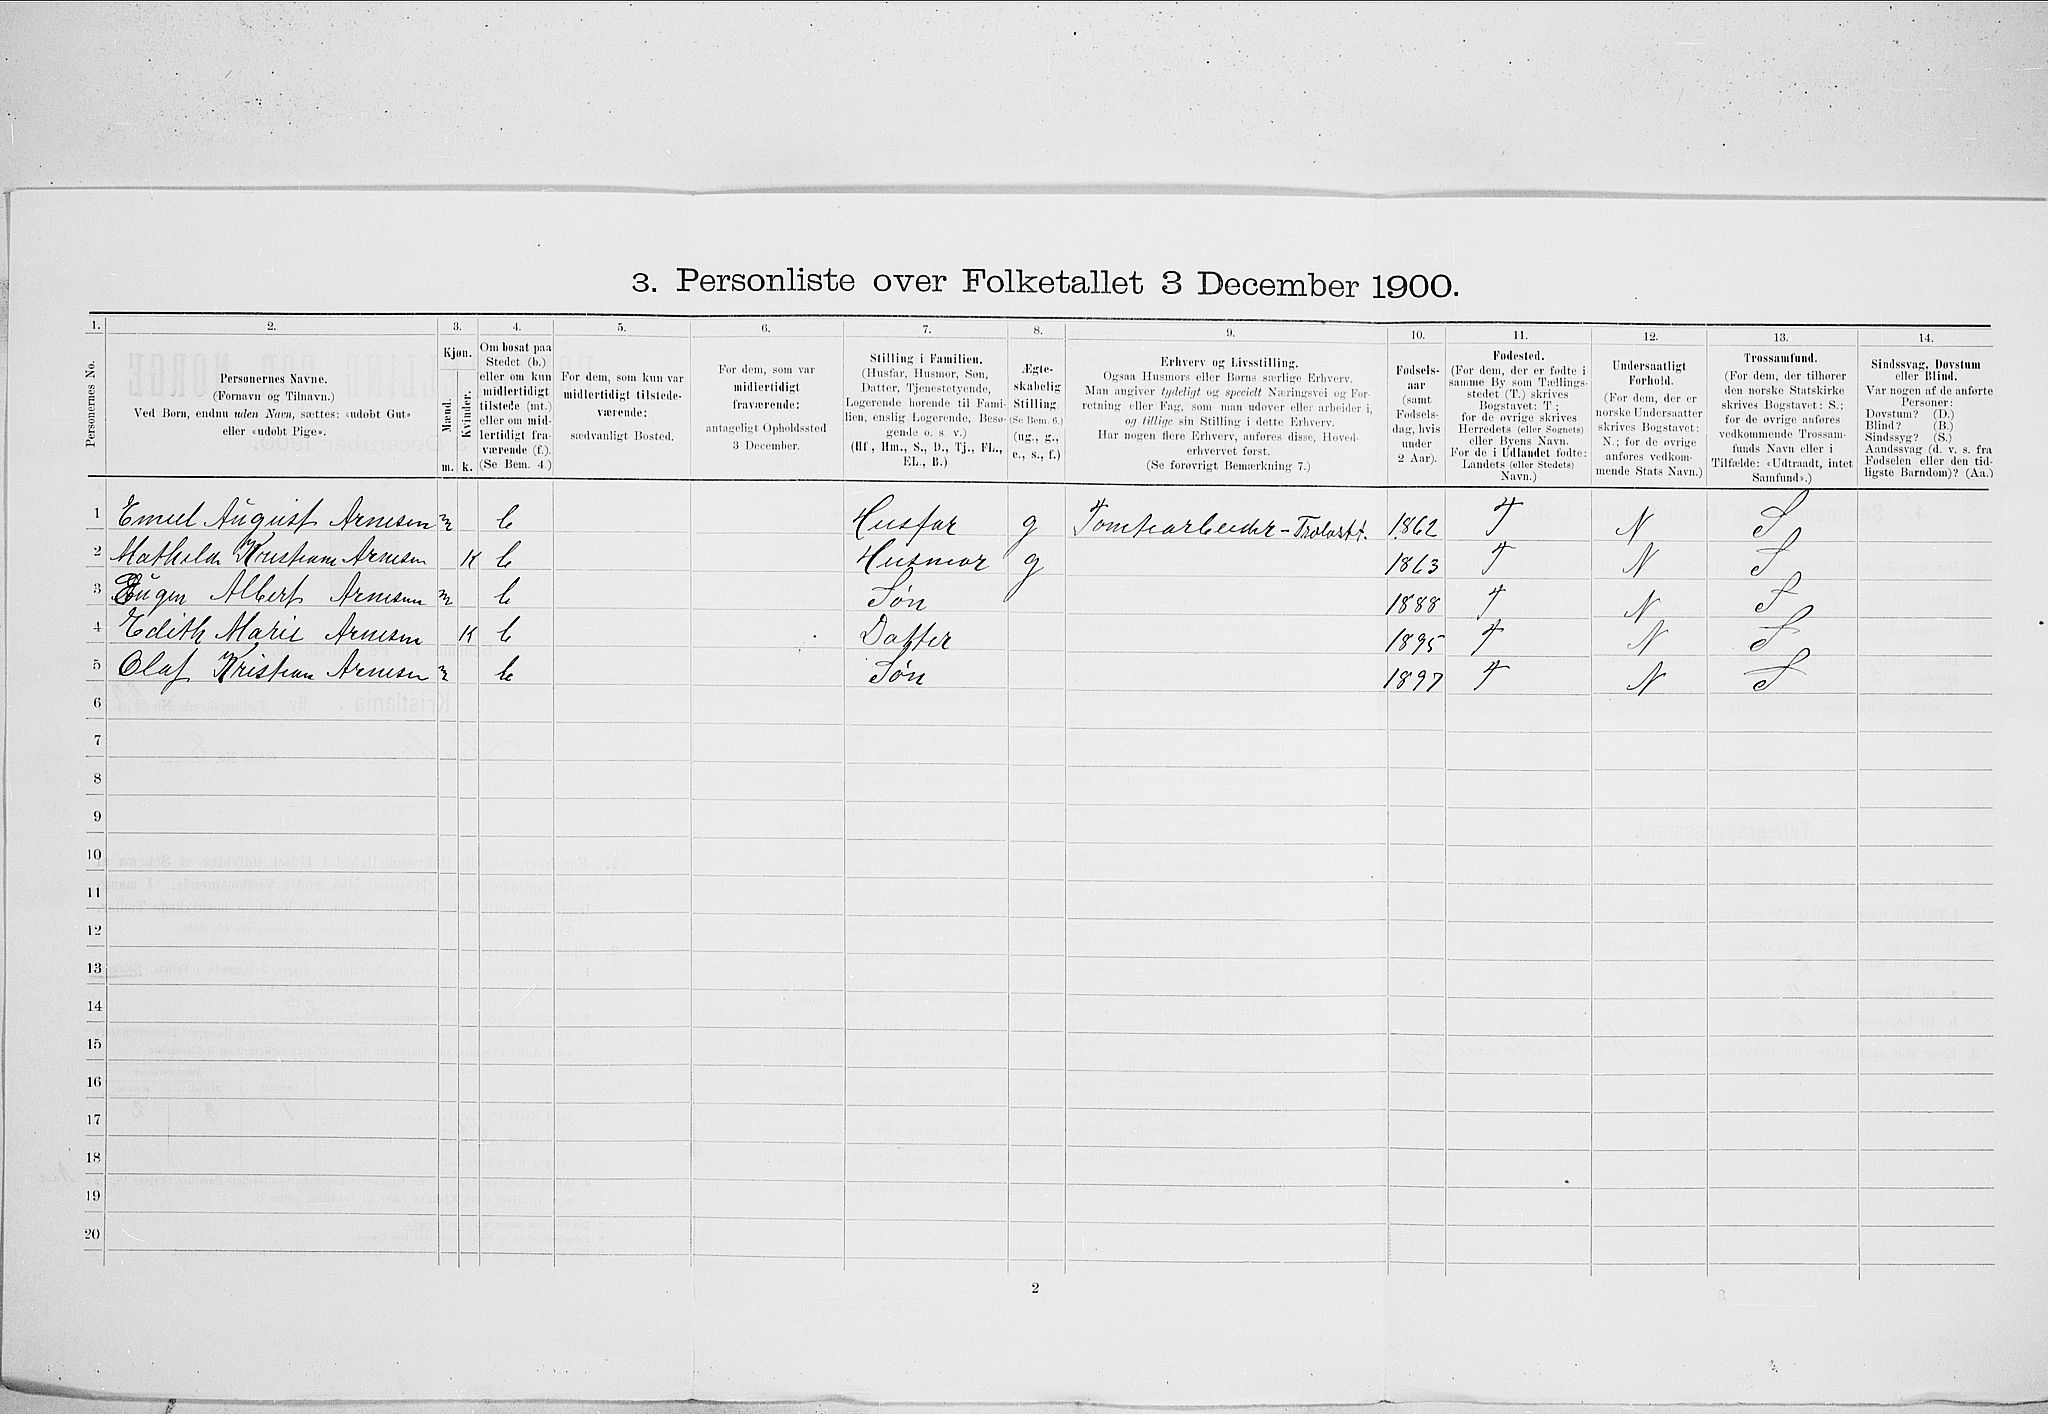 3. Personliste over Folketallet 3 December 1900.
1. 2. 3. 4. 5. 6. 7. 8. 9. 10. 11. 12. 13. 14.
Personernes No.
Personernes Navne.
(Fornavn og Tilnavn.)
Ved Børn, endnu uden Navn, sættes: «udøbt Gut»
eller «udøbt Pige».
Kjøn.
Mænd.
Kvinder.
m. k.
Om bosat paa
Stedet (b.)
eller om kun
midlertidigt
tilstede (mt.)
eller om mid-
lertidigt fra-
værende (f.).
(Se Bem. 4.)
For dem, som kun var
midlertidigt tilstede-
værende:
sædvanligt Bosted.
For dem, som var
midlertidigt
fraværende:
antageligt Opholdssted
3 December.
Stilling i Familien.
(Husfar, Husmor, Søn,
Datter, Tjenestetyende,
Logerende hørende til Fami-
lien, enslig Logerende, Besø-
gende o. s. v.)
(Hf., Hm., S., D., Tj., FL.,
EL., B.)
Ægte-
skabelig
Stilling.
(Se Bem. 6.)
(ug., g.,
e., s., f.)
Erhverv og Livsstilling.
Ogsaa Husmors eller Børns særlige Erhverv.
Man angiver tydeligt og specielt Næringsvei og For-
retning eller Fag, som man udøver eller arbeider i,
og tillige sin Stilling i dette Erhverv.
Har nogen flere Erhverv, anføres disse, Hoved-
erhvervet først.
(Se forøvrigt Bemærkning 7.)
Fødsels-
aar
(samt
Fødsels-
dag, hvis
under
2 Aar).
Fødested.
(For dem, der er fødte i
samme By som Tællings-
stedet (T.) skrives
Bogstavet: T;
for de øvrige skrives
Herredets (eller Sognets)
eller Byens Navn.
For de i Udlandet fødte:
Landets (eller Stedets)
Navn.)
Undersaatligt
Forhold.
(For dem, der er
norske Undersaatter
skrives Bogstavet:
N.; for de øvrige
anføres vedkom-
mende Stats Navn.)
Trossamfund.
(For dem, der tilhører
den norske Statskirke
skrives Bogstavet: S.;
for de øvrige anføres
vedkommende Trossam-
funds Navn eller i
Tilfælde: «Udtraadt, intet
Samfund».)
Sindssvag, Døvstum
eller Blind.
Var nogen af de anførte
Personer:
Døvstum? (D.)
Blind? (B.)
Sindssyg? (S.)
Aandssvag (d. v. s. fra
Fødselen eller den tid-
ligste Barndom)? (Aa.)
1 Emiel August Arnesen m b Husfar g Tomtearbeider - Trælastt. 1862 T N S
2 Mathilda Kristiane Arnesen K b Husmor g 1863 T N S
3 Eugen Albert Arnesen m b Søn 1888 T N S
4 Edith Marie Arnesen K b Datter 1895 T N S
5 Olaf Kristian Arnesen m b Søn 1897 T N S
6
7
8
9
10
11
12
13
14
15
16
17
18
19
20
2